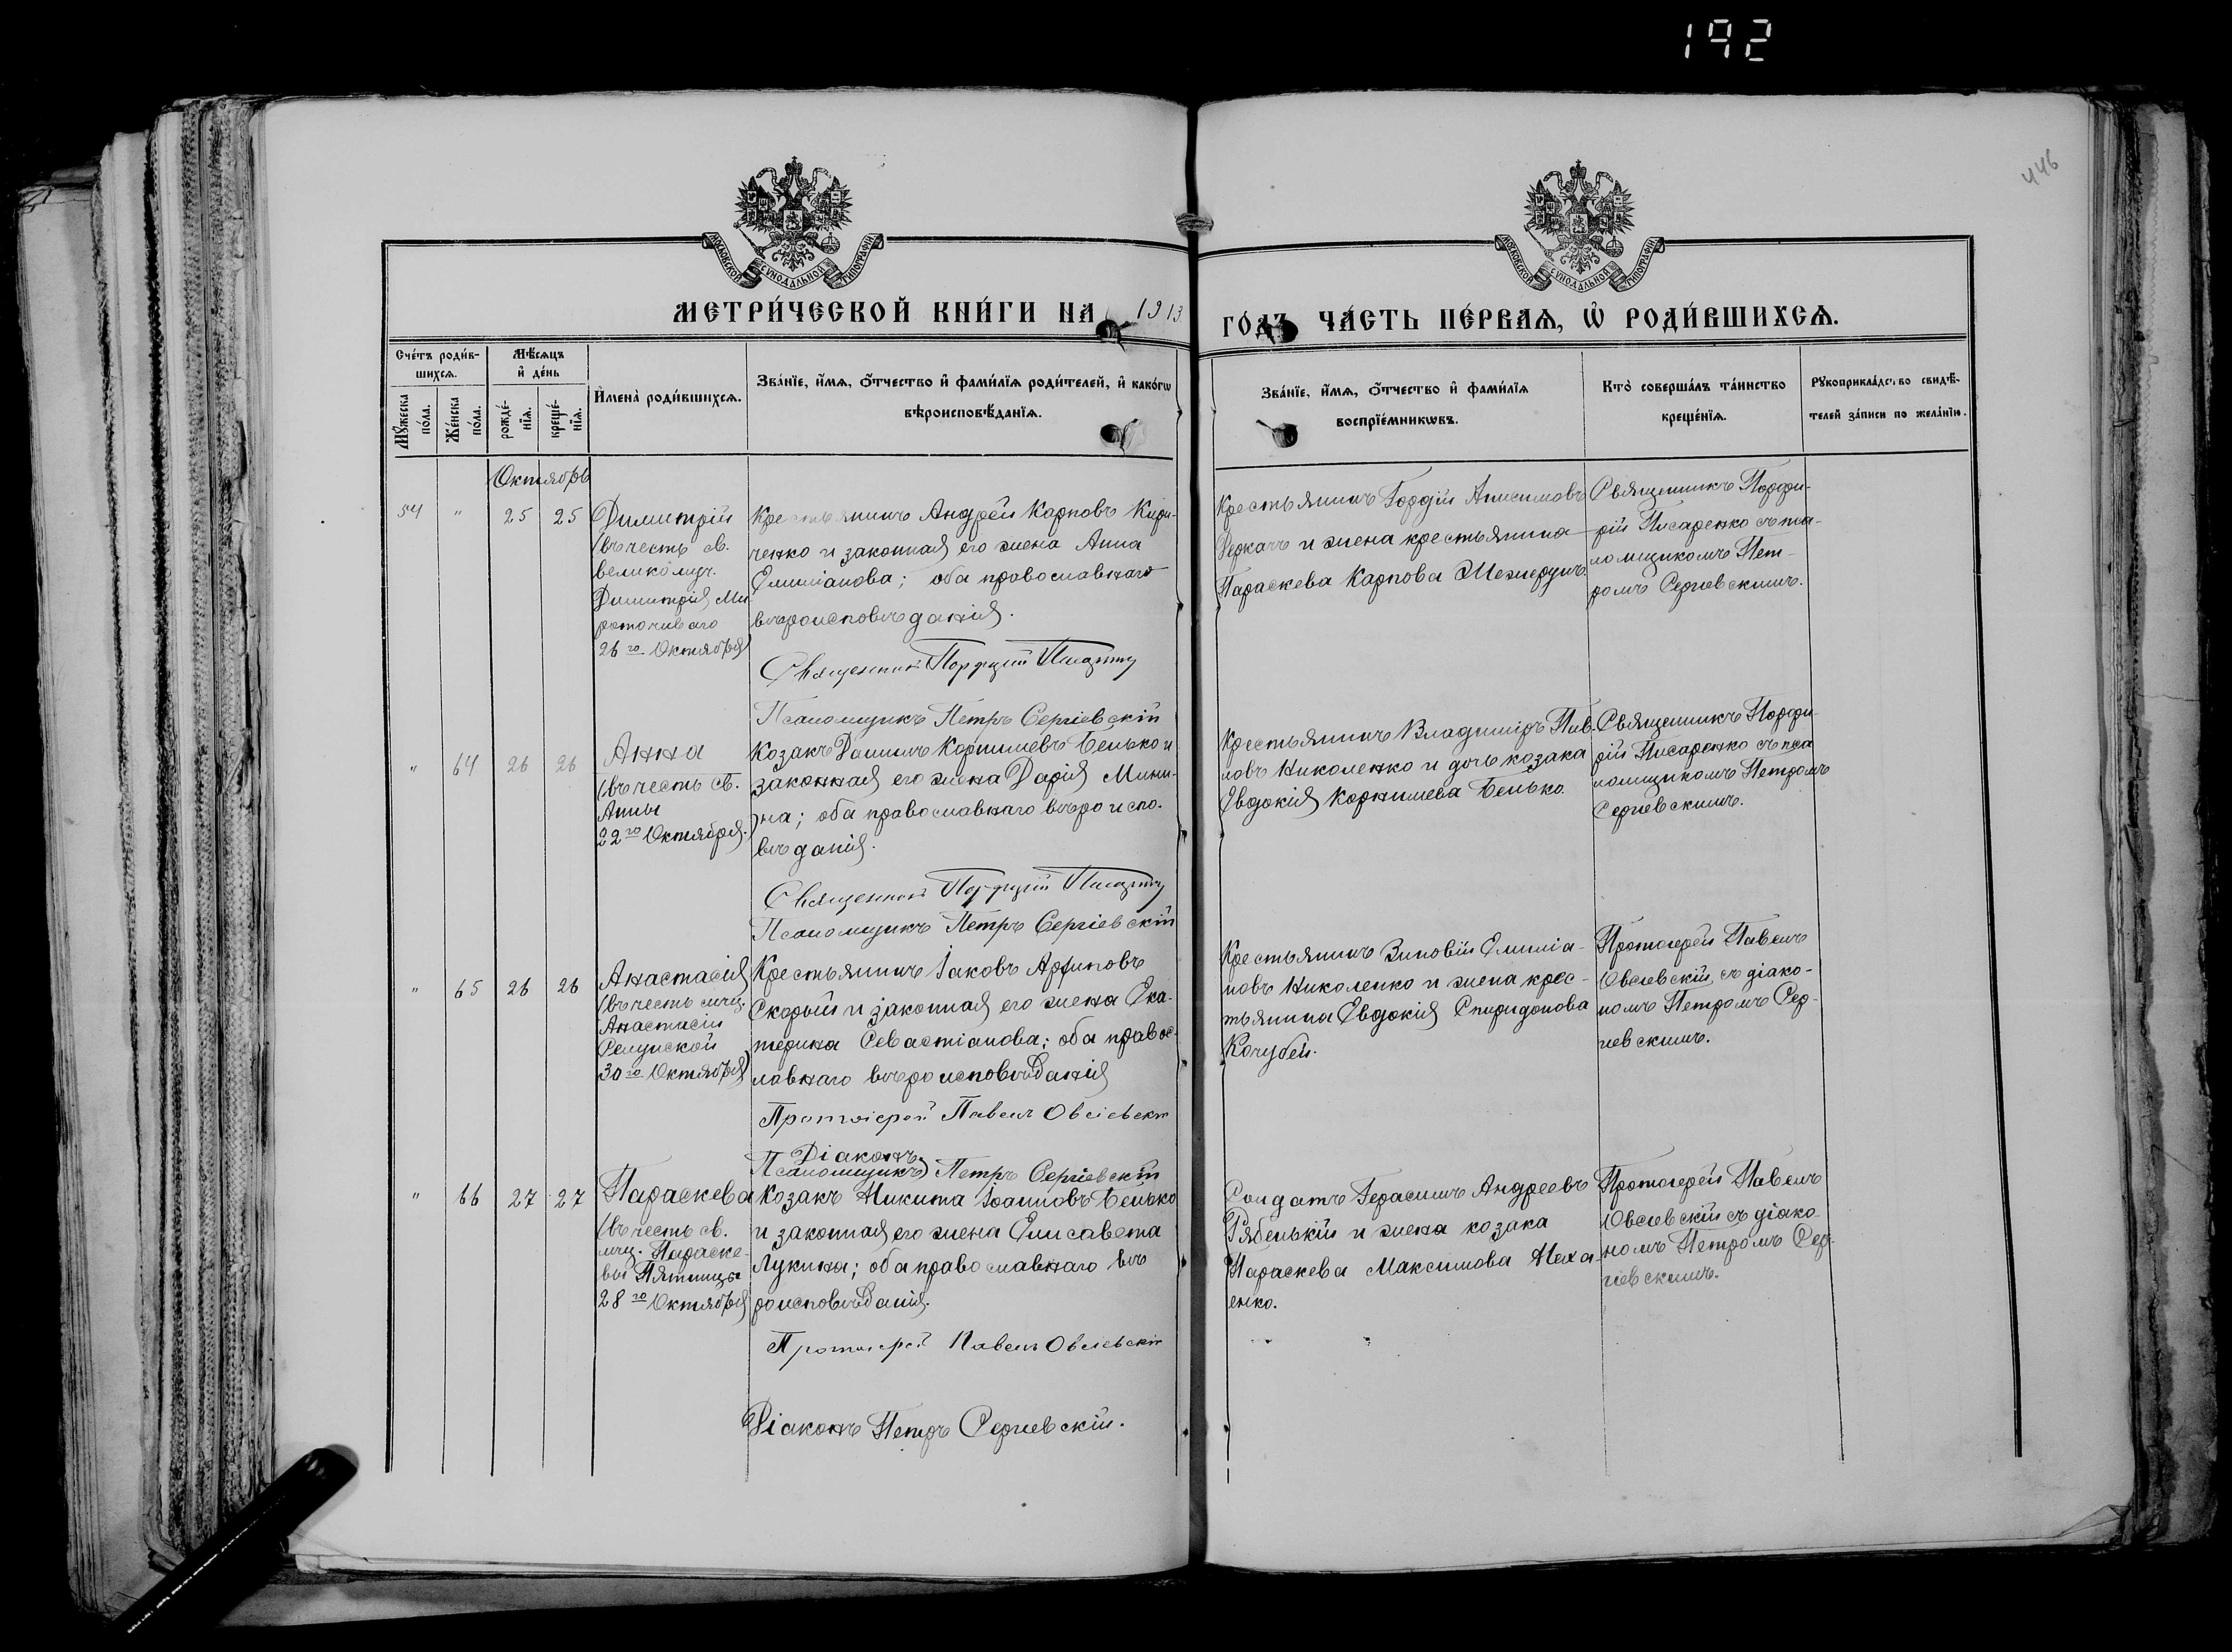 192
446
МОСКОВСКОЙ СУНОДАЛЬНОЙ ТИПОГРАФІИ
МОСКОВСКОЙ СУНОДАЛЬНОЙ ТИПОГРАФІИ
МЕТРИ́ЧЕСКОЙ КНИ́ГИ НА 1913
ГО́ДЪ ЧА́СТЬ ПЕ́РВАѦ, Ѡ҆ РОДИ́ВШИХСѦ.
Сче́тъ роди́в-
шихсѧ.
Мꙋ́жеска
по́ла.
Же́нска
по́ла.
Мѣ́сѧцъ
и҆ де́нь
рожде́-
нїѧ.
креще́-
нїѧ.
И҆мена̀ роди́вшихсѧ.
Зва́нїе, и҆́мѧ, ѻ҆́тчество и҆ фами́лїѧ роди́телей, и҆ како́гѡ
вѣроисповѣ́данїѧ.
Зва́нїе, и҆́мѧ, ѻ҆́тчество и҆ фами́лїѧ
воспрїе́мникѡвъ.
Кто̀ соверша́лъ та́инство
креще́нїѧ.
Рꙋкоприкла́дство свидѣ́-
телей за́писи по жела́нїю.
Октябрь
54 " 25 25
Димитрій
(въ честь св.
великомуч.
Димитрія Ми
роточиваго
26го Октября)
Крестьянинъ Андрей Карповъ Кири-
ченко и законная его жена Анна
Емиліанова; оба православнаго
вѣроисповѣданія.
Священникъ Порфирій Писаренко
Псаломщикъ Петръ Сергіевскій
Крестьянинъ Гордій Анисимовъ
Деркачъ и жена крестьянина
Параскева Карпова
Священникъ Порфи-
рій Писаренко съ пса-
ломщикомъ Пет-
ромъ Сергіевскимъ.
" 64 26 26
Анна
(въ честь св.
Анны
22го Октября.)
Козакъ Даніилъ Корниліевъ Бенько и
законная его жена Дарія Мини-
на; оба православнаго вѣроиспо-
вѣданія.
Священникъ Порфирій Писаренко
Псаломщикъ Петръ Сергіевскій
Крестьянинъ Владиміръ Пав-
ловъ Николенко и дочь козака
Евдокія Корнилиева Бенько
Священникъ Порфи-
рій Писаренко съ пса
ломщикомъ Петромъ
Сергіевскимъ.
" 65 26 26
Анастасія
(въ честь мчц.
Анастасіи
Римской
30го Октября)
Крестьянинъ Іаковъ Архиповъ
Скорый и законная его жена Ека-
терина Севастіанова; оба правос-
лавнаго вѣроисповѣданія
Протоіерей Павелъ Овсіевскій
Діаконъ
Псаломщикъ) Петръ Сергіевскій
Крестьянинъ Зиновій Емиліа-
новъ Николенко и жена крес-
тьянина Евдокія Спиридонова
Кочубей.
Протоіерей Павелъ
Овсіевскій съ діако-
номъ Петромъ Сер-
гіевскимъ.
" 66 27 27
Параскева
(въ честь св.
мчц. Параске-
вы Пятницы
28го Октября)
Козакъ Никита Іоанновъ Бенько
и законная его жена Елисавета
Лукина; оба православнаго вѣ
роисповѣданія.
Протоіерей Павелъ Овсіевскій
Діаконъ Петръ Сергіевскій.
Солдатъ Герасимъ Андреевъ
Рябенькій и жена козака
Параскева Максимова Неха-
енко.
Протоіерей Павелъ
Овсіевскій съ діако
номъ Петромъ Сер-
гіевскимъ.